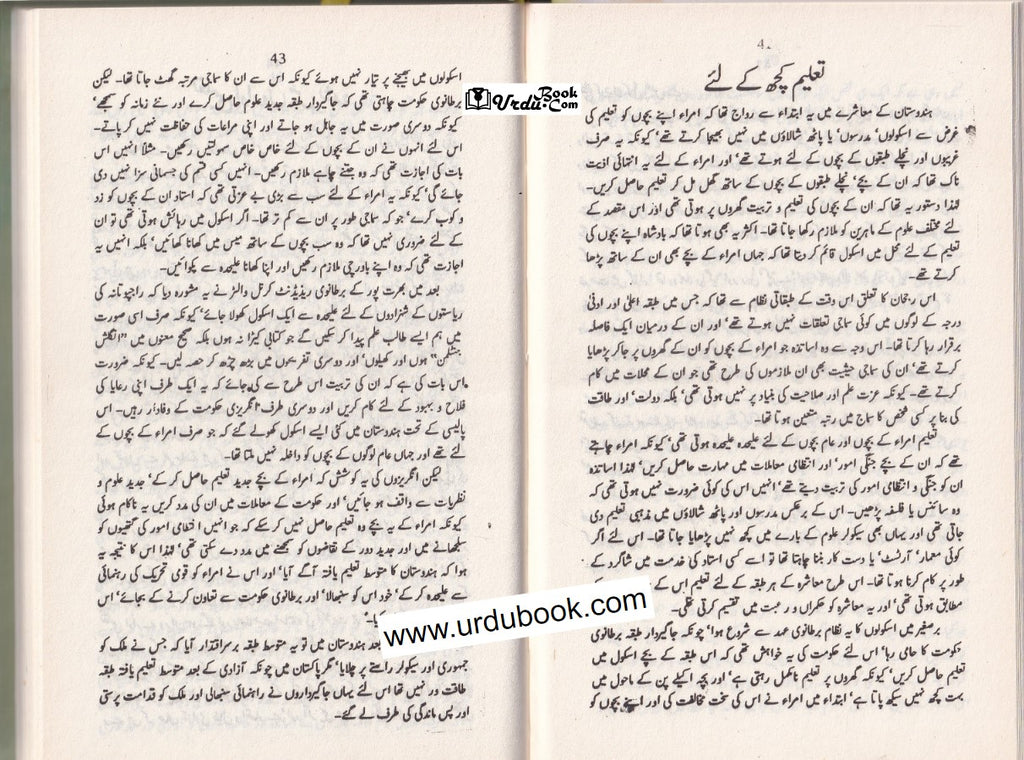 42
تعلیم کچھ کے لئے
ہندوستان کے معاشرے میں یہ ابتداء سے رواج تھا کہ امراء اپنے بچوں کو تعلیم کی
غرض سے اسکولوں' مدرسوں' یا پاٹھ شالاؤں میں نہیں بھیجا کرتے تھے' کیونکہ یہ صرف
غریبوں اور نچلے طبقوں کے بچوں کے لئے ہوتے تھے' اور امراء کے لئے یہ انتہائی اذیت
ناک تھا کہ ان کے بچے' نچلے طبقوں کے بچوں کے ساتھ گھل مل کر تعلیم حاصل کریں۔
لہٰذا دستور یہ تھا کہ ان کے بچوں کی تعلیم و تربیت گھروں پر ہوتی تھی اور اس مقصد کے
لئے مختلف علوم کے ماہرین کو ملازم رکھا جاتا تھا۔ اکثر یہ بھی ہوتا تھا کہ بادشاہ اپنے بچوں کی
تعلیم کے لئے محل میں اسکول قائم کر دیتا تھا کہ جہاں امراء کے بچے بھی ان کے ساتھ پڑھا
کرتے تھے۔
اس رجحان کا تعلق اس وقت کے طبقاتی نظام سے تھا کہ جس میں طبقہ اعلیٰ اور ادنیٰ
درجہ کے لوگوں میں کوئی سماجی تعلقات نہیں ہوتے تھے' اور ان کے درمیان ایک فاصلہ
برقرار رہا کرتا تھا۔ اس وجہ سے وہ اساتذہ جو امراء کے بچوں کو ان کے گھروں پر جا کر پڑھایا
کرتے تھے' ان کی سماجی حیثیت بھی ان ملازموں کی طرح تھی جو ان کے محلات میں کام
کرتے تھے۔ کیونکہ عزت علم اور صلاحیت کی بنیاد پر نہیں ہوتی تھی' بلکہ دولت' اور طاقت
کی بنا پر کسی شخص کا سماج میں رتبہ متعین ہوتا تھا۔
تعلیم امراء کے بچوں اور عام بچوں کے لئے علیحدہ علیحدہ ہوتی تھی' کیونکہ امراء چاہتے
تھے کہ ان کے بچے جنگی امور' اور انتظامی معاملات میں مہارت حاصل کریں' لہٰذا اساتذہ
ان کو جنگی و انتظامی امور کی تربیت دیتے تھے' انہیں اس کی کوئی ضرورت نہیں ہوتی تھی کہ
وہ سائنس یا فلسفہ پڑھیں۔ اس کے برعکس مدرسوں اور پاٹھ شالاؤں میں مذہبی تعلیم دی
جاتی تھی اور یہاں بھی سیکولر علوم کے بارے میں کچھ نہیں پڑھایا جاتا تھا۔ اس لئے اگر
کوئی معمار' آرٹسٹ' یا دست کار بننا چاہتا تھا تو اسے کسی استاد کی خدمت میں شاگرد کے
طور پر کام کرنا ہوتا تھا۔ اس طرح معاشرہ کے ہر طبقہ کے لئے تعلیم اس کے
مطابق ہوتی تھی' اور یہ معاشرہ کو حکمراں و رعیت میں تقسیم کرتی تھی۔
برصغیر میں اسکولوں کا یہ نظام برطانوی عہد سے شروع ہوا' چونکہ جاگیردار طبقہ برطانوی
حکومت کا حامی رہا' اس لئے حکومت کی یہ خواہش تھی کہ اس طبقہ کے بچے اسکول میں
تعلیم حاصل کریں' کیونکہ گھروں پر تعلیم نامکمل رہتی ہے' اور بچہ اکیلے پن کے ماحول میں
بہت کچھ نہیں سیکھ پاتا ہے' ابتداء میں امراء نے اس کی سخت مخالفت کی اور اپنے بچوں کو
43
اسکولوں میں بھیجنے پر تیار نہیں ہوئے کیونکہ اس سے ان کا سماجی مرتبہ گھٹ جاتا تھا۔ لیکن
برطانوی حکومت چاہتی تھی کہ جاگیردار طبقہ جدید علوم حاصل کرے اور نئے زمانہ کو سمجھے'
کیونکہ دوسری صورت میں یہ جاہل ہو جاتے اور اپنی مراعات کی حفاظت نہیں کر پاتے۔
اس لئے انہوں نے ان کے بچوں کے لئے خاص خاص سہولتیں رکھیں۔ مثلاً انہیں اس
بات کی اجازت تھی کہ وہ جتنے چاہے ملازم رکھیں۔ انہیں کسی قسم کی جسمانی سزا نہیں دی
جائے گی' کیونکہ یہ امراء کے لئے سب سے بڑی بے عزتی تھی کہ استاد ان کے بچوں کو زد
و کوب کرے' جو کہ سماجی طور پر ان سے کم تر تھا۔ اگر اسکول میں رہائش ہوتی تھی تو ان
کے لئے ضروری نہیں تھا کہ وہ سب بچوں کے ساتھ میس میں کھانا کھائیں' بلکہ انہیں یہ
اجازت تھی کہ وہ اپنے باورچی ملازم رکھیں اور اپنا کھانا علیحدہ سے پکوائیں۔
بعد میں بھرت پور کے برطانوی ریذیڈنٹ کرنل والٹر نے یہ مشورہ دیا کہ راجپوتانہ کی
ریاستوں کے شہزادوں کے لئے علیحدہ سے ایک اسکول کھولا جائے' کیونکہ صرف اسی صورت
میں ہم ایسے طالب علم پیدا کر سکیں گے جو کتابی کیڑا نہ ہوں بلکہ صحیح معنوں میں "انگلش
جنٹلمن" ہوں اور کھیلوں' اور دوسری تفریحوں میں بڑھ چڑھ کر حصہ لیں۔ کیونکہ ضرورت
اس بات کی ہے کہ ان کی تربیت اس طرح سے کی جائے کہ یہ ایک طرف اپنی رعایا کی
فلاح و بہبود کے لئے کام کریں اور دوسری طرف انگریزی حکومت کے وفادار رہیں۔ اس
پالیسی کے تحت ہندوستان میں کئی ایسے اسکول کھولے گئے کہ جو صرف امراء کے بچوں کے
لئے تھے اور جہاں عام لوگوں کے بچوں کو داخلہ نہیں ملتا تھا۔
لیکن انگریزوں کی یہ کوشش کہ امراء کے بچے جدید تعلیم حاصل کر کے' جدید علوم و
نظریات سے واقف ہو جائیں' اور حکومت کے معاملات میں ان کی مدد کریں یہ ناکام ہوئی
کیونکہ امراء کے یہ بچے وہ تعلیم حاصل نہیں کر سکے کہ جو انہیں انتظامی امور کی گتھیوں کو
سلجھانے میں اور جدید دور کے تقاضوں کو سمجھنے میں مدد دے سکتی تھی' لہٰذا اس کا نتیجہ یہ
ہوا کہ ہندوستان کا متوسط تعلیم یافتہ آگے آیا' اور اس نے امراء کو قومی تحریک کی رہنمائی
سے علیحدہ کر کے' خود اس کو سنبھالا' اور برطانوی حکومت سے تعاون کرنے کے بجائے' اس
کیا۔
بعد ہندوستان میں تو یہ متوسط طبقہ برسراقتدار آیا کہ جس نے ملک کو
جمہوری اور سیکولر راستے پر چلایا' مگر پاکستان میں چونکہ آزادی کے بعد متوسط تعلیم یافتہ طبقہ
طاقت ور نہیں تھا اس لئے یہاں جاگیرداروں نے راہنمائی سنبھالی اور ملک کو قدامت پرستی
اور پس ماندگی کی طرف لے گئے۔
UrduBook.Com
www.urdubook.com